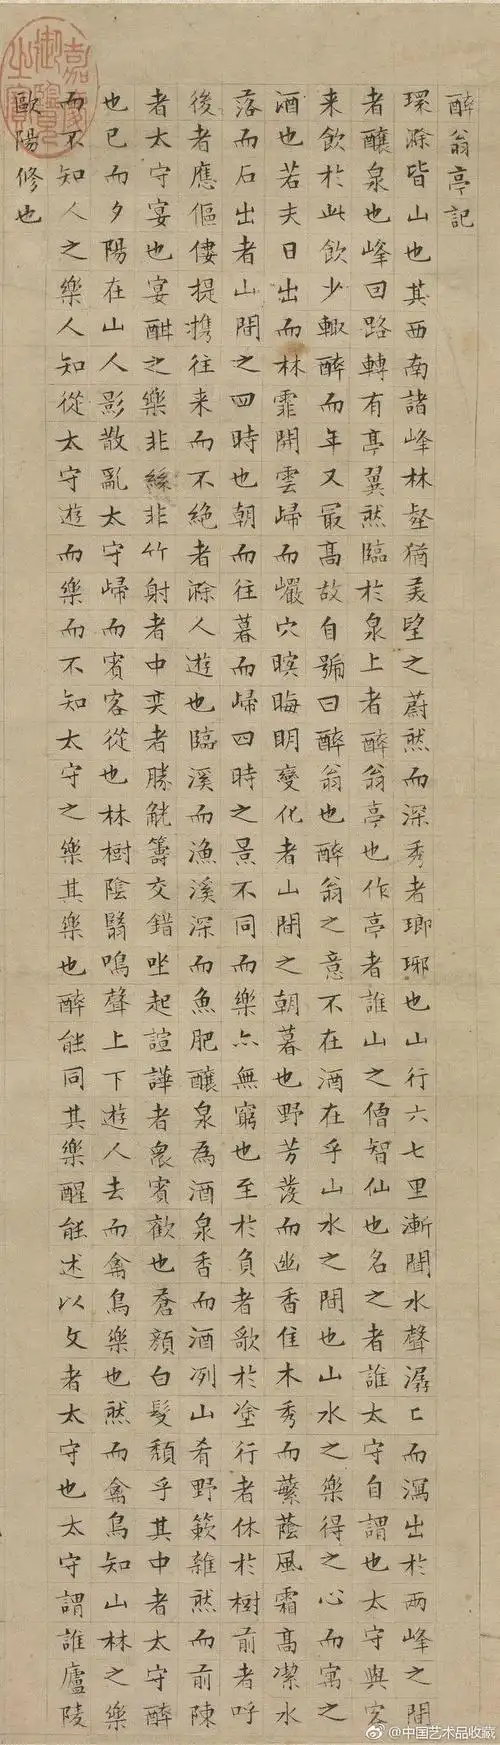 醉翁亭記
環滁皆山也其西南諸峰林壑猶美望之蔚然而深秀者瑯琊也山行六七里漸聞水聲潺〻而瀉出於两峰之間
者釀泉也峰回路轉有亭翼然臨於泉上者醉翁亭也作亭者誰山之僧智仙也名之者誰太守自謂也太守與客
来飲於此飲少輒醉而年又最髙故自號曰醉翁也醉翁之意不在酒在乎山水之間也山水之樂得之心而寓之
酒也若夫日出而林霏開雲歸而巖穴暝晦明變化者山間之朝暮也野芳發而幽香佳木秀而繁蔭風霜髙潔水
落而石出者山間之四時也朝而往暮而歸四時之景不同而樂亦無窮也至於負者歌於塗行者休於樹前者呼
後者應傴僂提攜往来而不絶者滁人遊也臨溪而漁溪深而魚肥釀泉為酒泉香而酒冽山肴野蔌雜然而前陳
者太守宴也宴酣之樂非絲非竹射者中奕者勝觥籌交錯坐起諠譁者衆賓歡也蒼顔白髮頹乎其中者太守醉
也已而夕陽在山人影散亂太守歸而賓客從也林樹陰翳鳴聲上下遊人去而禽鳥樂也然而禽鳥知山林之樂
而不知人之樂人知從太守遊而樂而不知太守之樂其樂也醉能同其樂醒能述以文者太守也太守謂誰廬陵
歐陽修也
嘉慶御覽之寶
@中国艺术品收藏